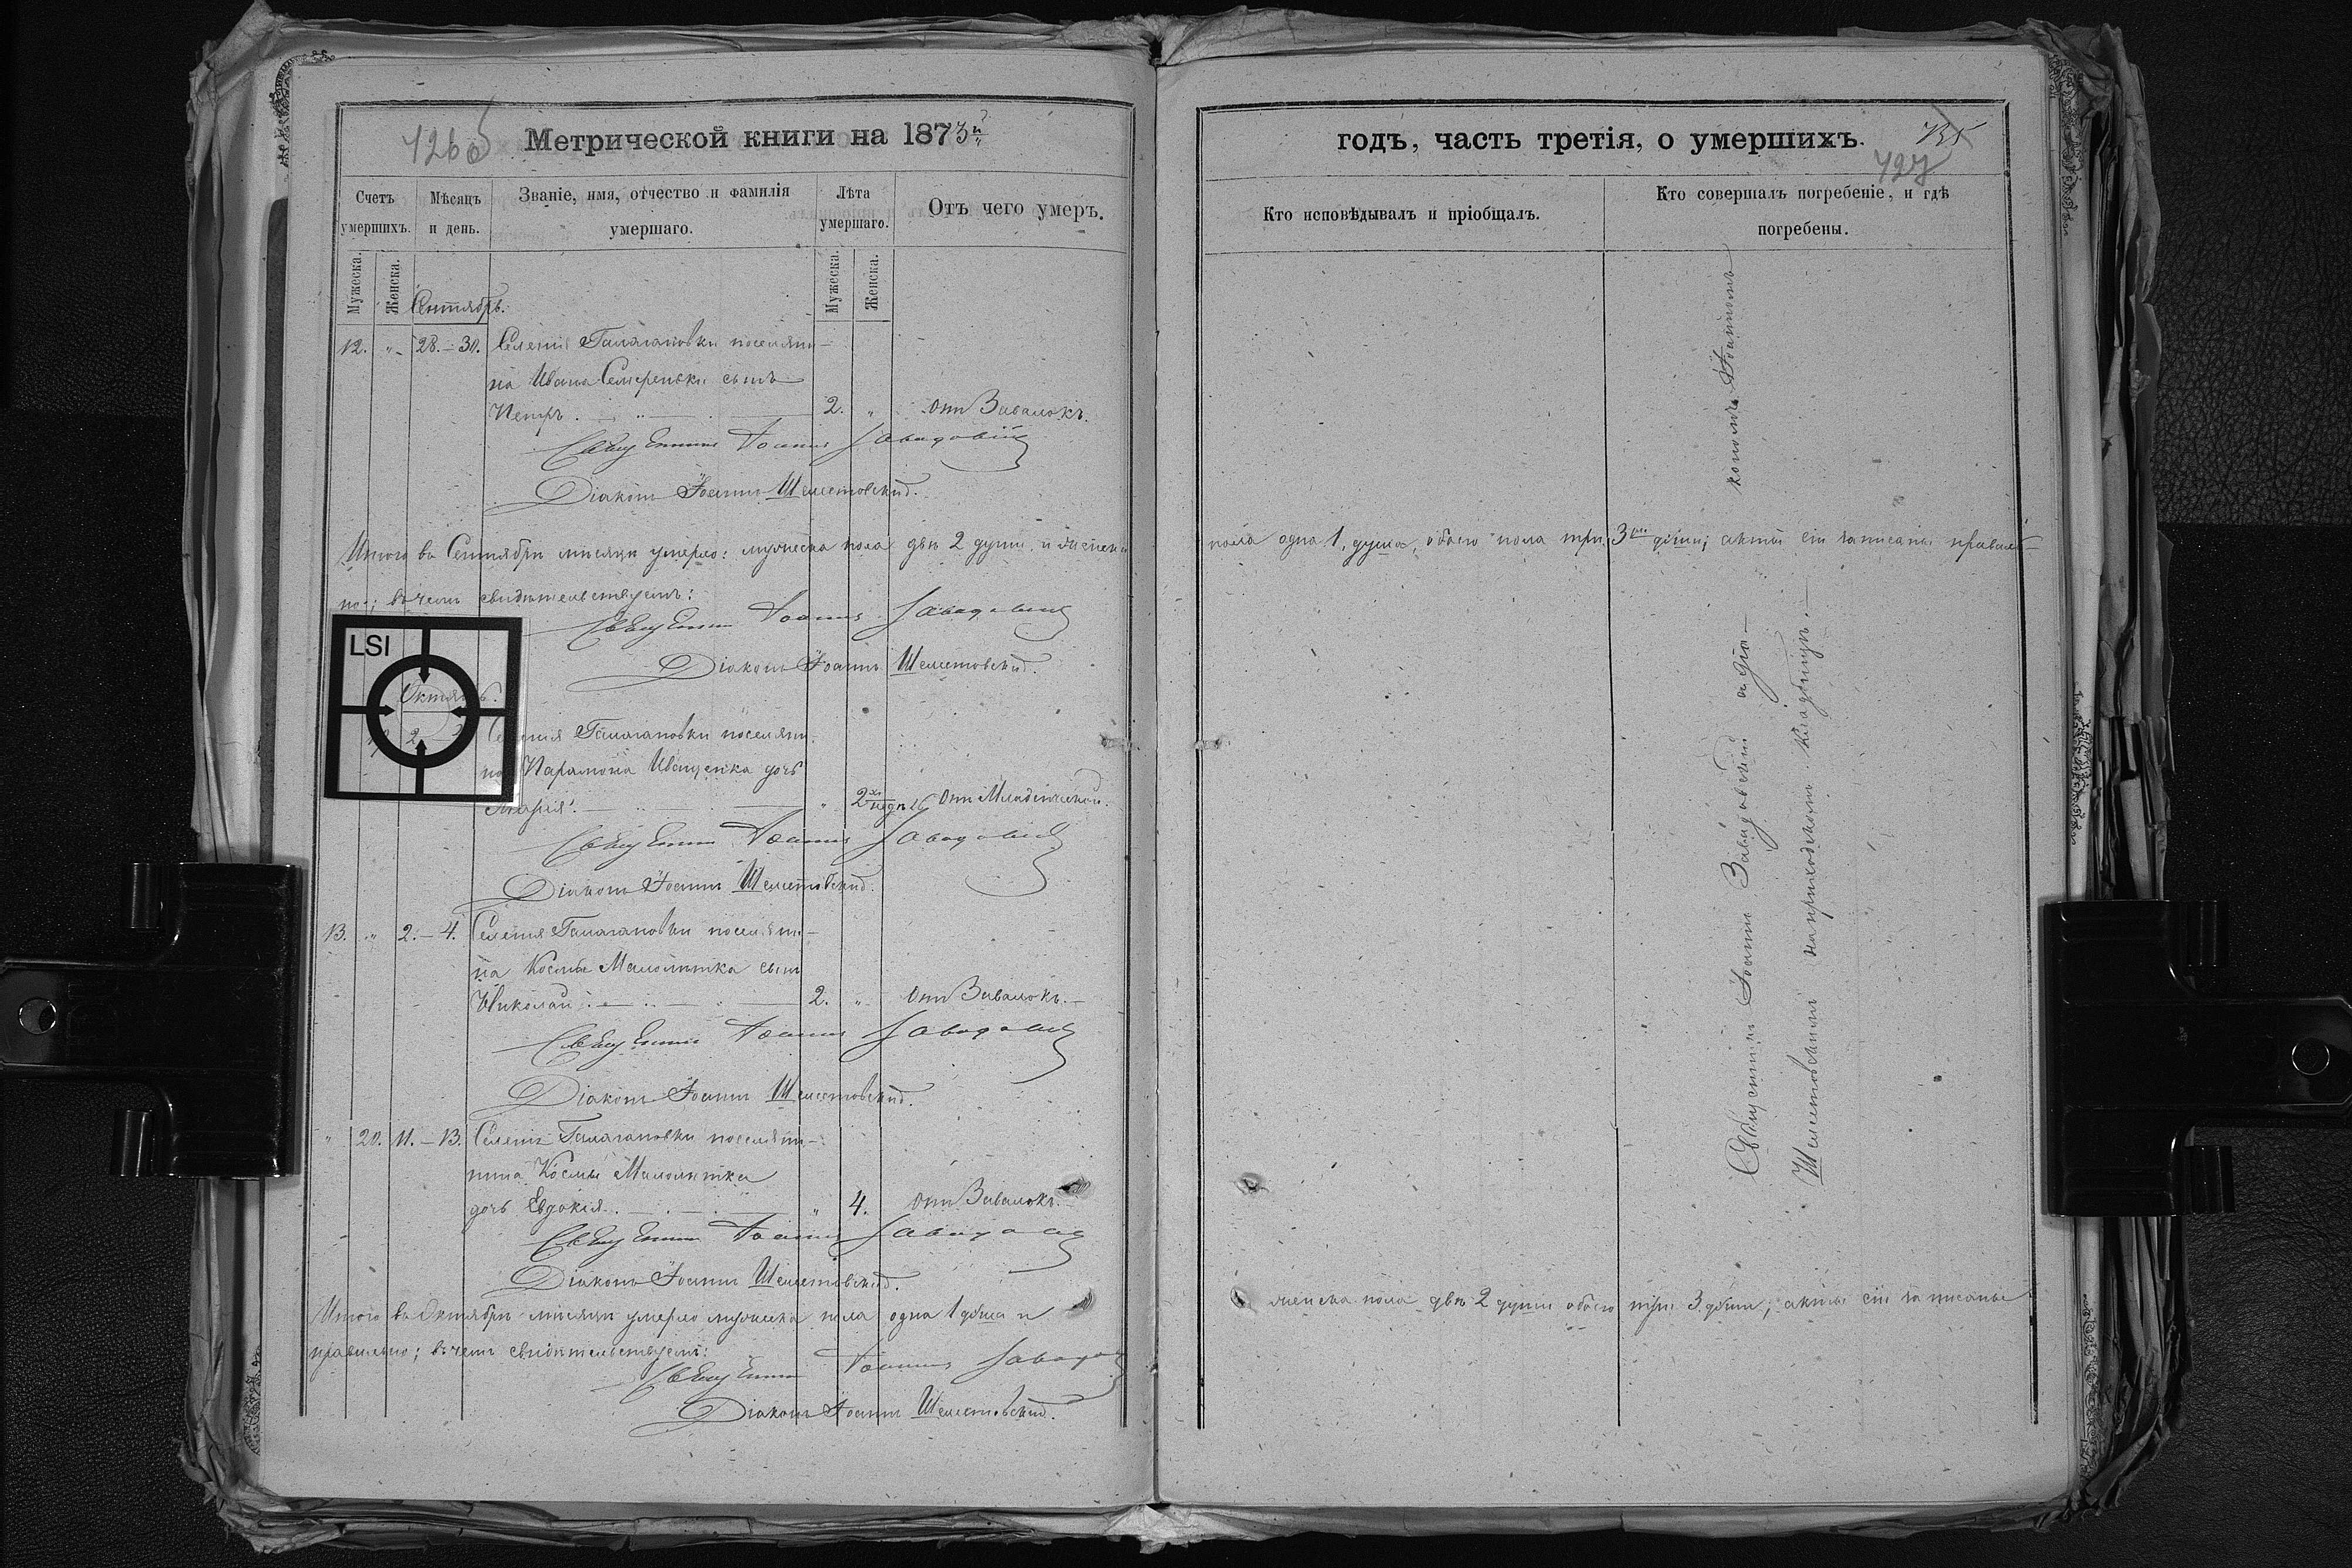 Метрической книги на 1873й
годъ, часть третія, о умершихъ.
Счетъ умершихъ.
Мѣсяцъ и день.
Званіе, имя, отчество и фамилія умершаго.
Лѣта умершаго.
Отъ чего умеръ.
Кто исповѣдывалъ и пріобщалъ.
Кто совершалъ погребеніе, и гдѣ погребены.
Мужеска.
Женска.
Мужеска.
Женска.
Сентябрь.
12. " 28.-30. Селенія Галагановки поселяни-
на Ивана Семиреньки сынъ
Петръ. 2. " отъ Завалокъ.
Священникъ Іоаннъ Завадовскій
Діаконъ Іоаннъ Шелестовскій.
Итого въ Сентябрѣ мѣсяцѣ умерло: мужеска пола двѣ 2 души, и женска
пола одна 1, душа, обоего пола три 3 души; акты сіи записаны правиль-
но; въ чемъ свидѣтельствуемъ:
Священникъ Іоаннъ Завадовскій
Діаконъ Іоаннъ Шелестовскій.
LSI
Октябрь.
Селенія Галагановки поселяни-
на Парамона Иващенка дочь
Марія. " 2хъ недѣль отъ Младенческой.
Священникъ Іоаннъ Завадовскій
Діаконъ Іоаннъ Шелестовскій.
13. " 2.-4. Селенія Галагановки поселяни-
на Космы Малолитка сынъ
Николай. 2. " отъ Завалокъ.
Священникъ Іоаннъ Завадовскій
Діаконъ Іоаннъ Шелестовскій.
" 20. 11.-13. Селенія Галагановки поселяни-
нина Космы Малолитка
дочь Евдокія. " 4. отъ Завалокъ.
Священникъ Іоаннъ Завадовскій
Діаконъ Іоаннъ Шелестовскій.
Итого въ Октябрѣ мѣсяцѣ умерло мужеска пола одна 1 душа и
женска пола двѣ 2 души обоего три 3 души; акты сіи записаны
правильно; въ чемъ свидѣтельствуемъ:
Священникъ Іоаннъ Завадовскій
Діаконъ Іоаннъ Шелестовскій.
Священникъ Іоаннъ Завадовскій съ діа-
кономъ Іоанномъ
Шелестовскимъ на приходскомъ кладбищѣ.